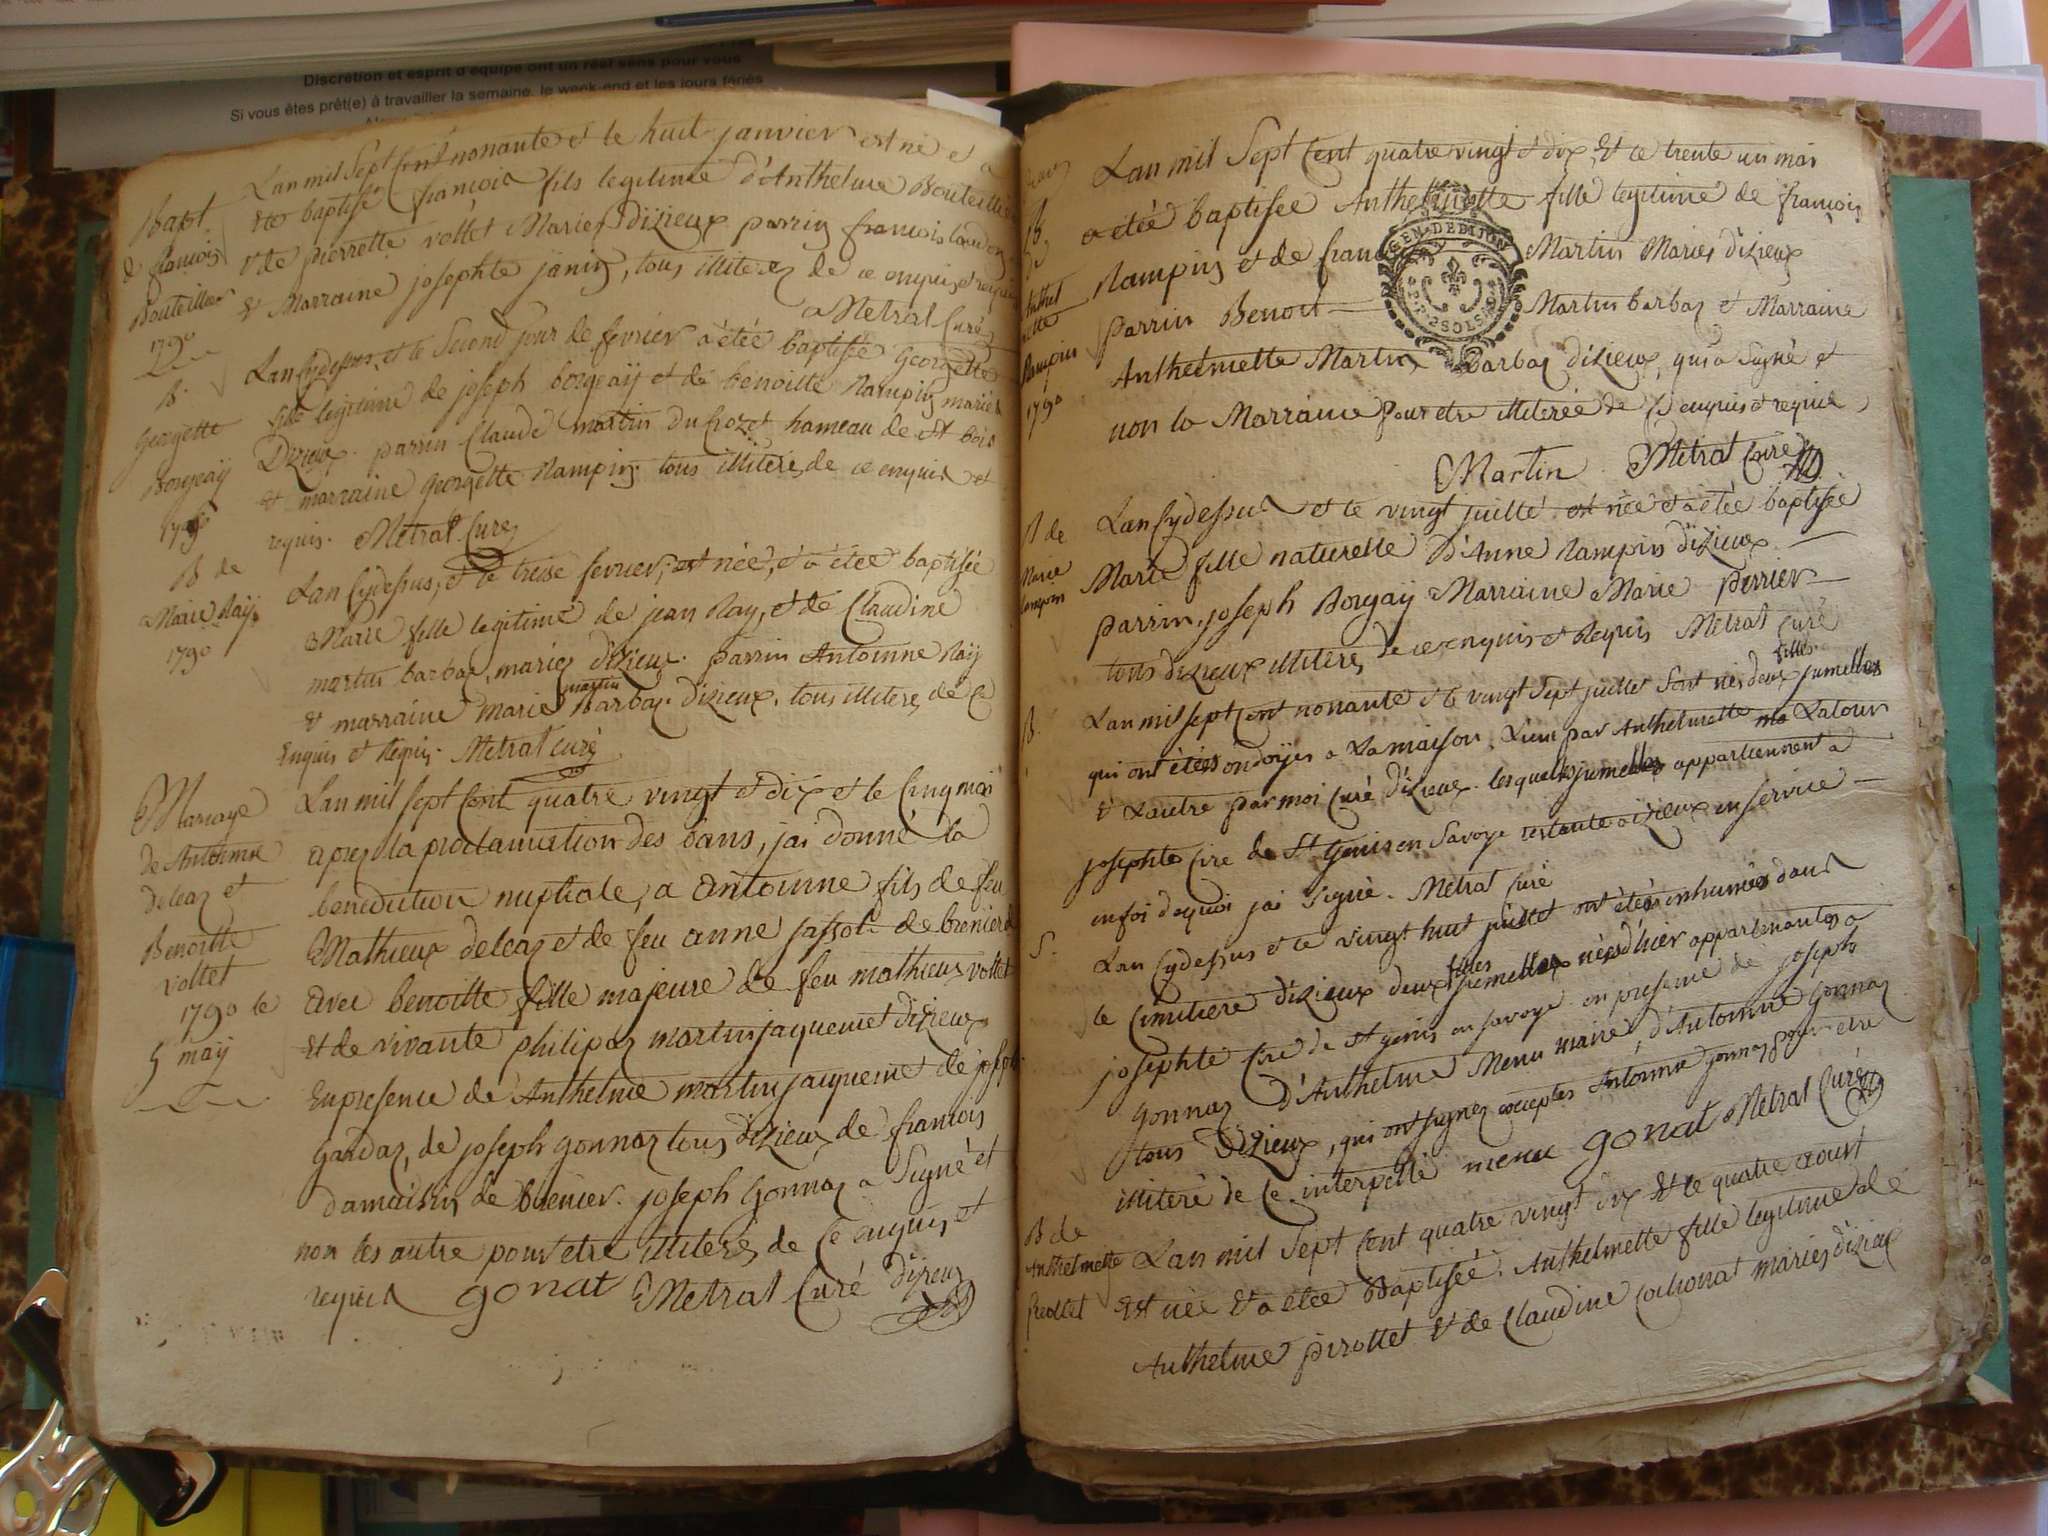 Discrétion et esprit d'équipe ont un réel sens pour vous
Si vous êtes prêt(e) à travailler la semaine, le week-end et les jours fériés
Bapt.
d françois
Bouteiller
1790
Lan mil Sept Cent nonante et le huit janvier est né et a
été baptisé françois fils legitime d'Anthelme Bouteiller
& de pierrette vollet Mariés dizieux parrin francois
& Marraine josephte janin, tous illiterés de ce enquis et requis
Metral Curé
B.
georgette
Borgeaÿ
1790
Lan Cydessus, et le Second jour de fevrier a étée baptisée Georgette
fille legitime de joseph borgeaÿ et de benoitte Rampin mariés
Dizieux. parrin Claude martin du Crozet hameau de St bois
& marraine georgette Rampin tous illiterés de ce enquis et
requis. Metral Curé
B de
Marie Raÿ
1790
Lan Cydessus, et le treise fevrier, est née, et a étée baptisée
Marie fille legitime de jean Ray, et de Claudine
martin barbaz, mariés dizieux. parrin Antoinne Raÿ
& marraine marie martin Barbaz dizieux. tous illiterés de Ce
Enquis et Requis. Metral Curé
Mariage
de Antoinne
deleaz et
Benoitte
vollet
1790 le
5 maÿ
Lan mil sept Cent quatre vingt et dix et le Cinq mai
apres la proclamation des bans, jai donné la
benediction nuptiale, a antoinne fils de feu
Mathieux deleaz et de feu anne de brenier
avec benoitte fille majeure de feu mathieux vollet
Et de vivante philipaz martin jaquemet dizieux
En presence de Anthelme martin jaquemet de joseph
gardaz, de joseph gonnaz tous dizieux de francois
damaisin de brenier. joseph Gonnaz a Signé et
non les autre pour etre illiterés de Ce enquis et
requis gonat Metral Curé dizieux
B
de
Anthel
mette
Rampin
1790
Lan mil Sept Cent quatre vingt et dix, Et le trente un mai
a étée baptisée Anthelmette fille legitime de françois
Rampin et de Martin Mariés dizieux
GEN. DE DIJON
parrin Benoit Martin barbaz et Marraine
Anthelmette Martin Barbaz dizieux, qui a Signé et
non la Marraine pour etre illiterée de Ce enquis et requise
Martin Metral Curé
B de
Marie
Rampin
Lan Cydessus et le vingt juillé est née et a étée baptisée
Marie fille naturelle D'Anne Rampin dizieux
parrin, joseph Borgaÿ Marraine Marie perrier
tous dizieux illiterés de ce enquis et Requis Metral Curé
B.
filles
Lan mil sept Cent nonante et le vingt Sept juillet Sont nées deux jumelles
qui ont étées ondoyes a La maison. Lune par Anthelmette Latour
& Lautre par moi Curé dizieux. lesquelles jumelles appartiennent a
josephte Cire de St genis en Savoye restante a izieux en service
en foi dequoi jai Signé. Metral Curé
S.
Lan Cydessus et le vingt huit juillet ont étées inhumées dans
le Cimitiere dizieux deux filles jumelles nées d'hier appartenantes a
josephte Cire de St genis en savoye en presence de joseph
Gonnaz d'Anthelme Menu maire, d'Antoinne Gonnaz
tous Dizieux, qui ont signez exceptes Antoinne gonnaz pour etre
illiteré de Ce interpellé menu gonat Metral Curé
B de
Anthelmette
Lan mil Sept Cent quatre vingt dix Et le quatre aoust
Est née Et a étée Baptisée. Anthelmette fille legitime de
Anthelme pirollet & de Claudine Cochonat mariés dizieux